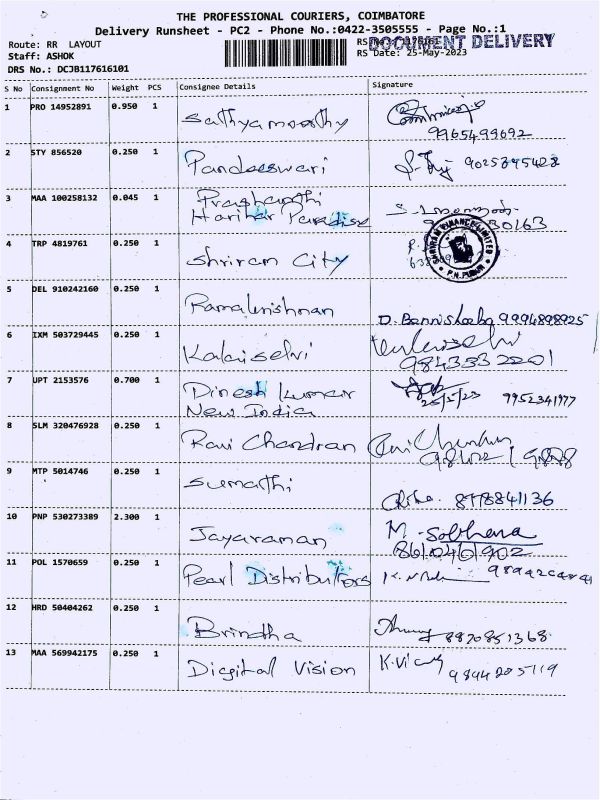 THE PROFESSIONAL COURIERS, COIMBATORE
Delivery Runsheet - PC2 - Phone No.:0422-3505555 - Page No.:1
Route: RR LAYOUT
DOCUMENT DELIVERY
Staff: ASHOK
RS Date: 25-May-2023
DRS No.: DCJB117616101
S No Consignment No Weight PCS Consignee Details Signature
1 PRO 14952891 0.950 1 Sathyamoorthy
9965499692
2 STY 856520 0.250 1 Pandeeswari
3 MAA 100258132 0.045 1 Prashanthi
Harihar Paradise
4 TRP 4819761 0.250 1 Shriram City
SHRIRAM FINANCE LIMITED
5 DEL 910242160 0.250 1 Ramakrishnan 9994898925
6 IXM 503729445 0.250 1 Kalaiselvi
9843532201
7 UPT 2153576 0.700 1 Dinesh Kumar
New India 25/5/23 9952341977
8 SLM 320476928 0.250 1 Ravi Chandran
9 MTP 5014746 0.250 1 Sumathi
8778841136
10 PNP 530273389 2.300 1 Jayaraman M. Sobhana
8610401902
11 POL 1570659 0.250 1 Pearl Distributors
12 HRD 50404262 0.250 1 Brindha 8870851368
13 MAA 569942175 0.250 1 Digital Vision
9894205119